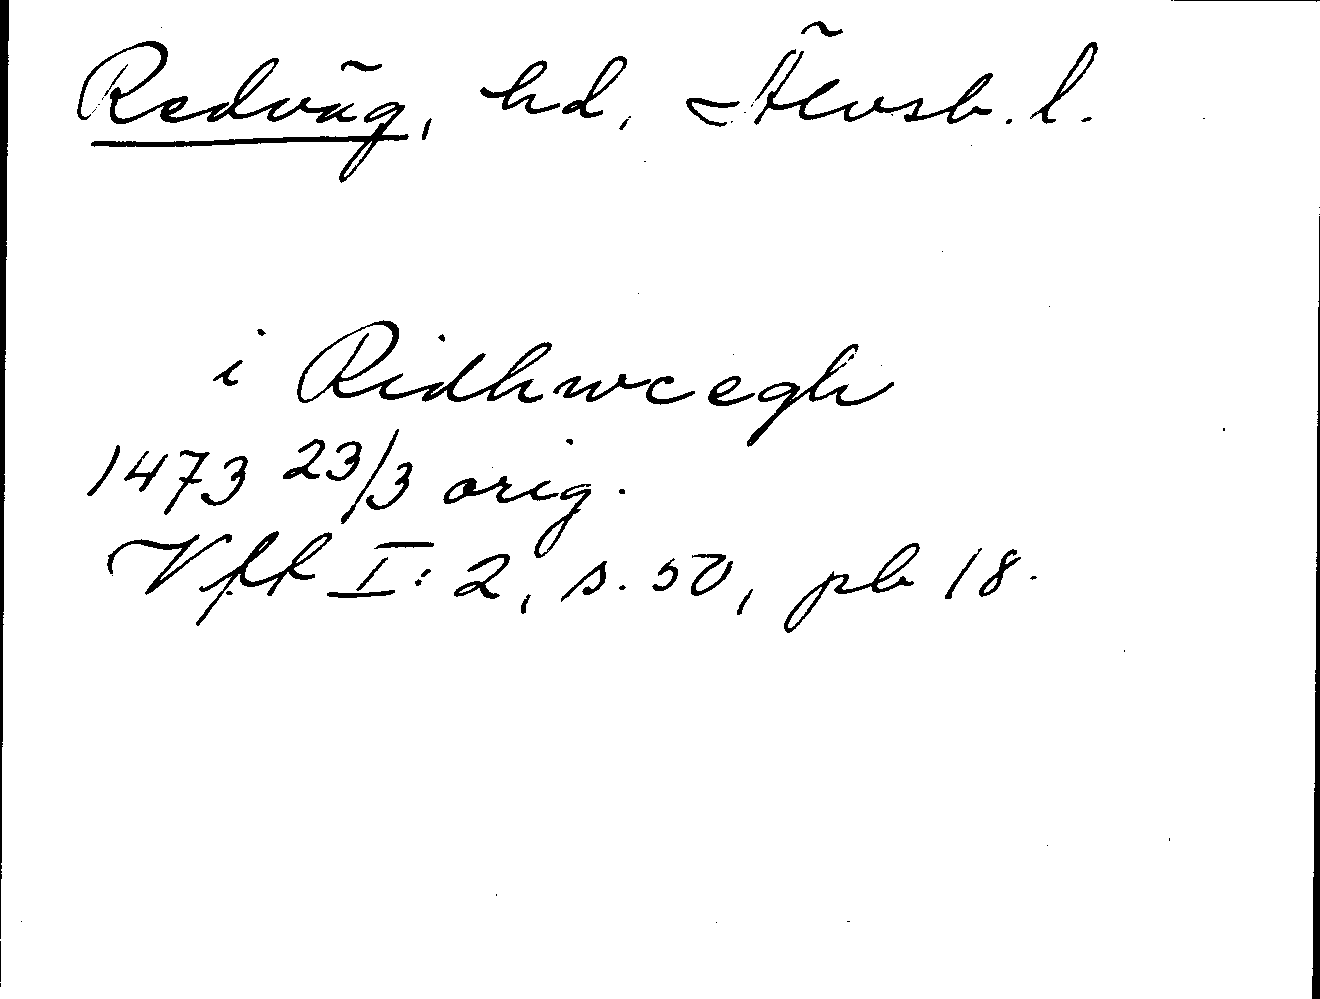 Redväg, hd, Älvsb. l.
i Ridhwæegh
1473 23/3 orig.
Vff I:2, s. 50, pb 18.